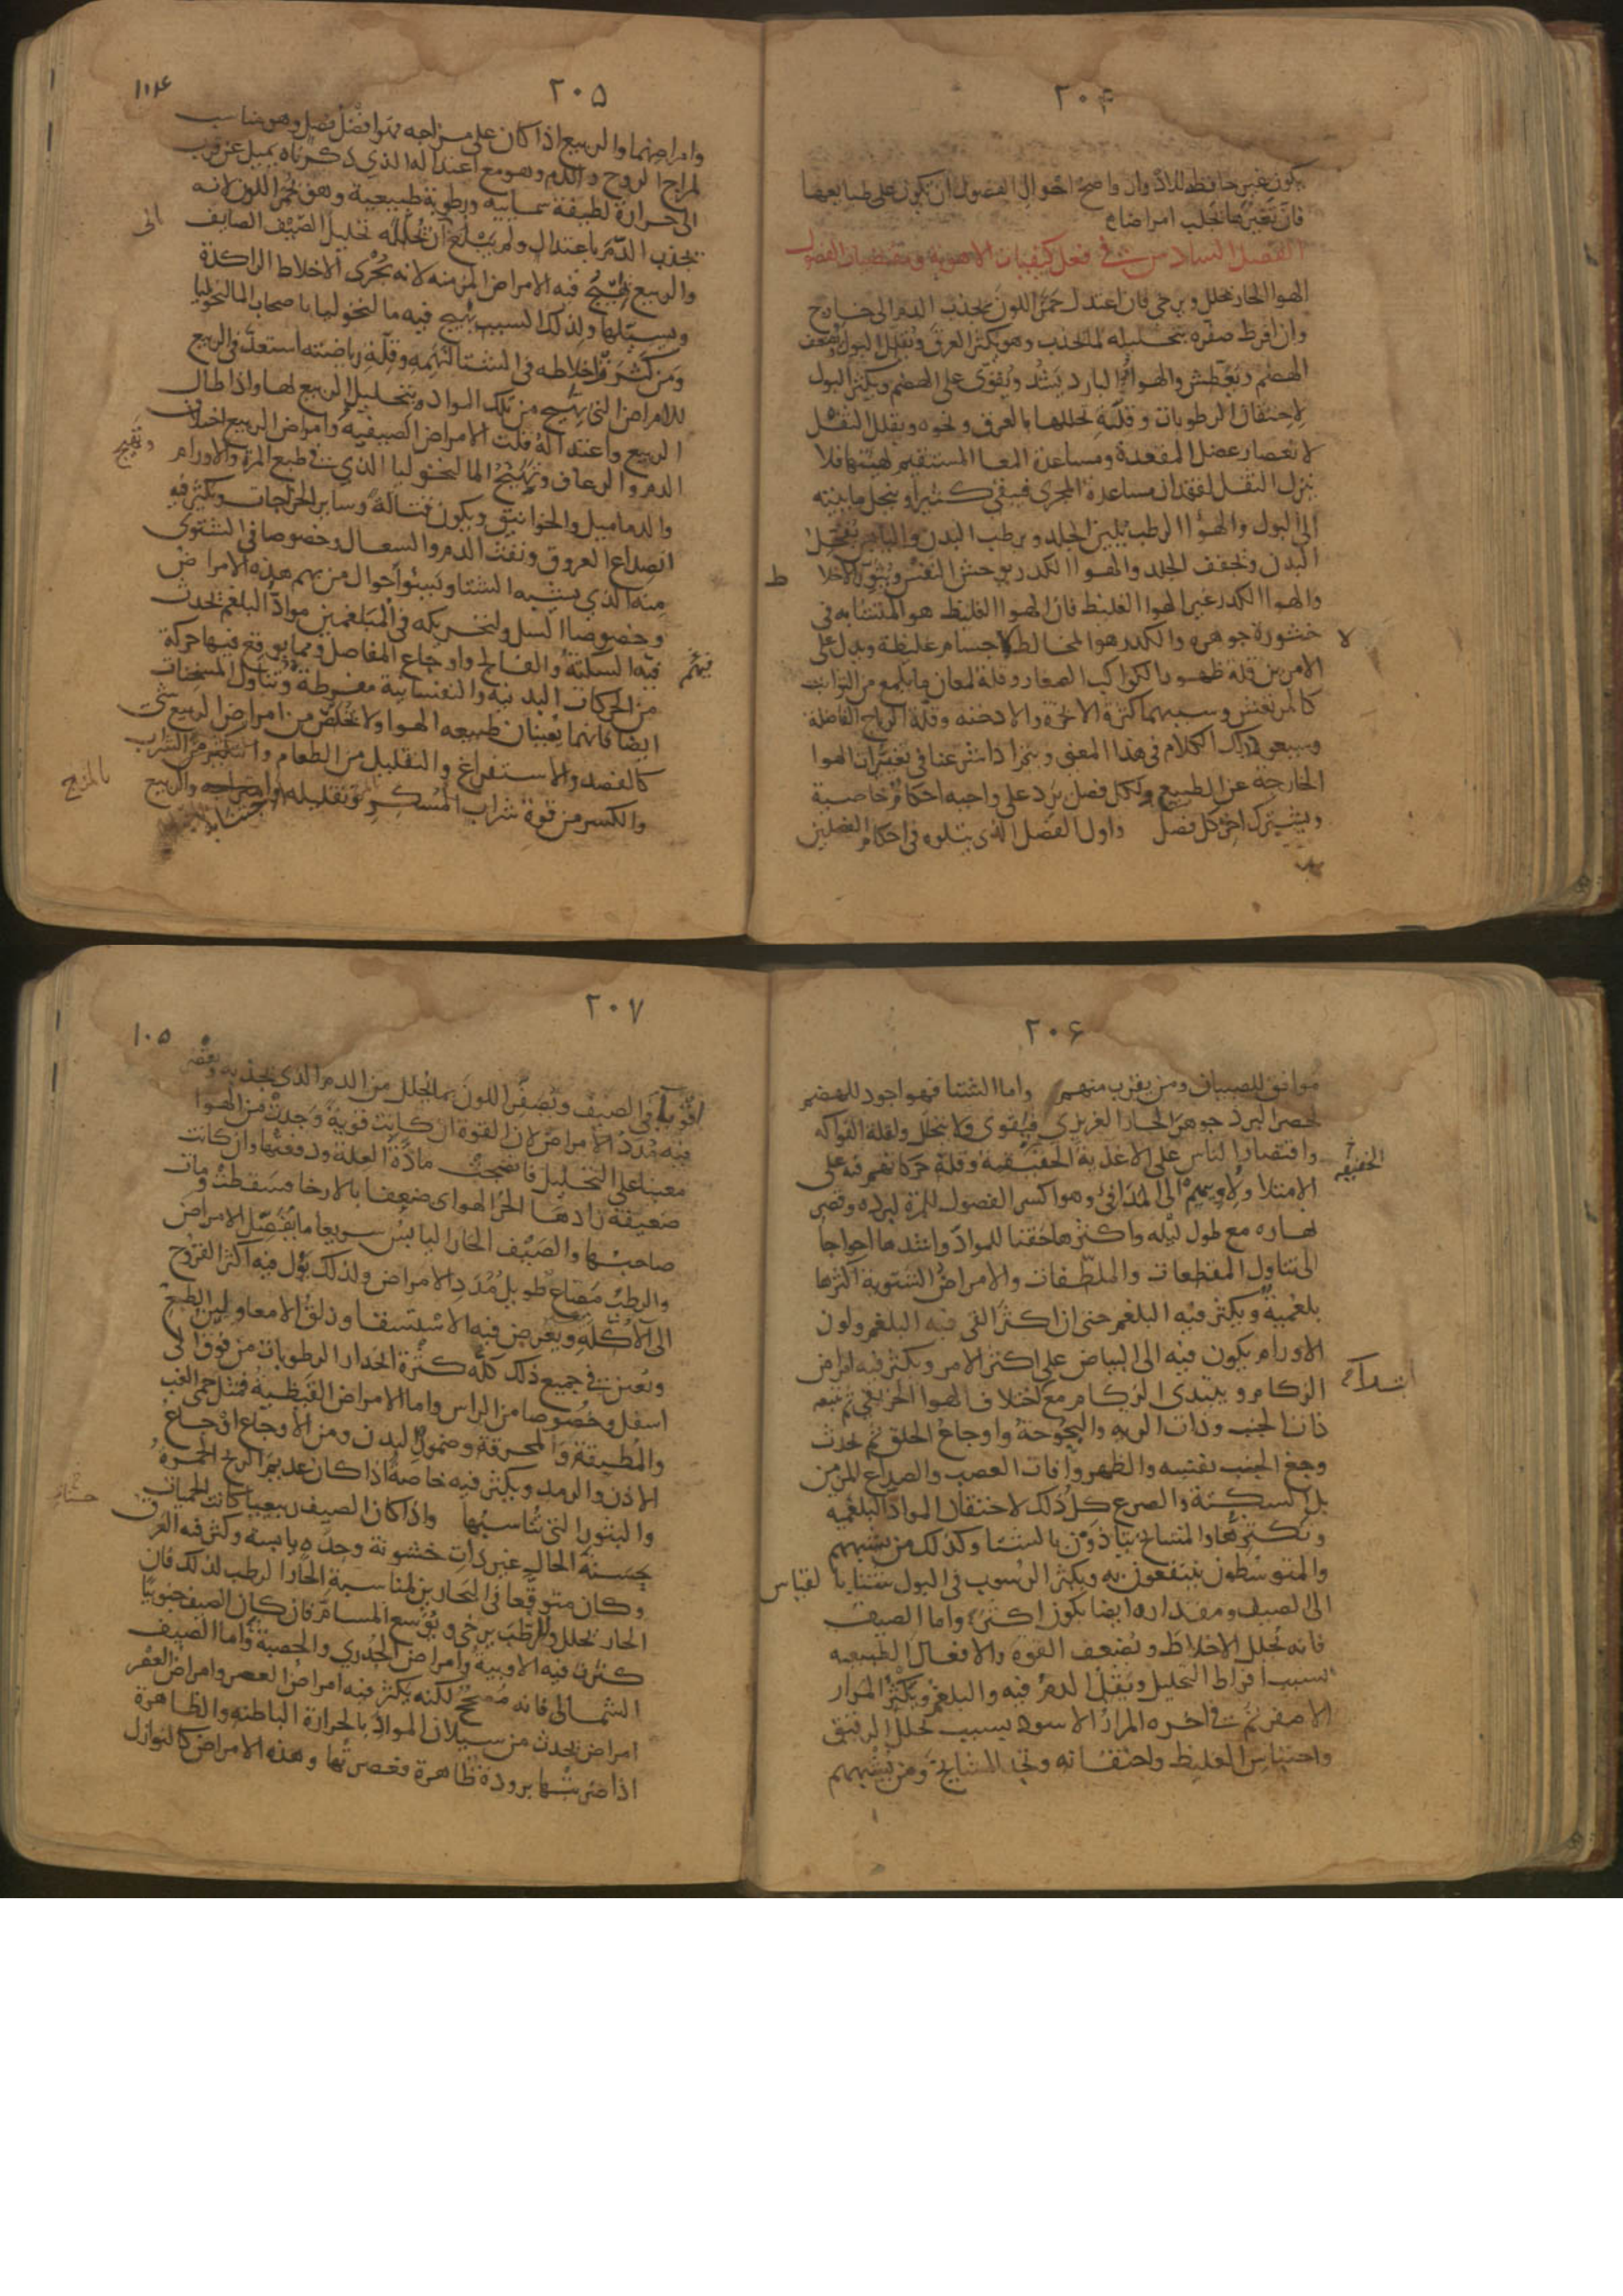 ٢٠۴
يكون غير حافظه للادوار واصح احوال الفصول ان يكون على طبايعها
فان تغيرها تجلب امراضا
الفصل السادس في فعل كيفيات الاهوية ومقتضيات الفصول
الهوا الحار يحلل ويرخي فان اعتدل حمر اللون بجذب الدم الى خارج
وان افرط صفره بتحليله لما يجذب وهو يكثر العرق ويقلل البول ويضعف
الهضم ويعطش والهوا البارد يشد ويقوى على الهضم ويكثر البول
لاحتقان الرطوبات وقلة تحللها بالعرق ونحوه ويقلل الثفل
لانعصار عضل المقعدة ومساعدة المعا المستقيم لهيئتها فلا
ينزل الثفل لفقدان مساعدة المجرى فيبقى كثيرا وينحل مايئيته
الى البول والهوا الرطب يلين الجلد ويرطب البدن واليابس يقحل
البدن ويجفف الجلد والهوا الكدر يوحش النفس ويثور الاخلا
ط
والهوا الكدر غير الهوا الغليظ فان الهوا الغليظ هو المتشابه في
خثورة جوهره والكدر هو المخالط لاجسام غليظة ويدل على
لا
الامرين قلة ظهور الكواكب الصغار وقلة لمعان ما يلمع من الثوابت
كالمرتعش وسببهما كثرة الابخرة والادخنة وقلة الرياح الفاضلة
وسيعود لك الكلام في هذا المعنى ويتم اذا شرعنا في تغيرات الهوا
الخارجة عن الطبيع ولكل فصل يرد على واجبه احكام خاصية
ويشترك اخر كل فصل واول الفصل الذي يتلوه في احكام الفصلين
٢٠۵
١٠۴
وامراضهما والربيع اذا كان على مزاجه فهو افضل فصل وهو مناسب
لمزاج الروح والدم وهو مع اعتداله الذي ذكرناه يميل عن قرب
الى حرارة لطيفة سمايية ورطوبة طبيعية وهو يحمر اللون لانه
الى
يجذب الدم باعتدال ولم يبلغ ان يحلله تحليل الصيف الصايف
والربيع تهيج فيه الامراض المزمنه لانه يجرى الاخلاط الراكدة
ويسيلها ولذلك السبب تهيج فيه مالنخوليا باصحاب المالنخوليا
ومن كثرت اخلاطه في الشتا لنهمه وقلة رياضته استعد في الربيع
للامراض التي تهيج من تلك المواد بتحليل الربيع لها واذا طال
الربيع واعتداله قلت الامراض الصيفية وامراض الربيع اختلاف
الدم والرعاف وتهييج المالنخوليا الذي في طبع المرة والاورام
وتهييج
والدماميل والخوانيق ويكون قتالة وساير الخراجات ويكثر فيه
انصداع العروق ونفث الدم والسعال وخصوصا في الشتوى
منه الذي يشبه الشتا ويسوا احوال من بهم هذه الامراض
وخصوصا السل ولتحريكه في المبلغمين مواد البلغم تحدث
فيه السكتة والفالج واوجاع المفاصل ومما يوقع فيها حركة
فيهم
من الحركات البدنيه والنفسانية مفرطة وتناول المسخنات
ايضا فانهما يعينان طبيعه الهوا ولا يخلص من امراض الربيع شي
كالفصد والاستفراغ والتقليل من الطعام والتكثير من الشراب
والكسر من قوة شراب المسكر وتقليله والربيع
بالمزج
٢٠۶
موافق للصبيان ومن يقرب منهم واما الشتا فهو اجود للهضم
لحصر البرد جوهر الحار الغريزي فيقوى ولا يتحلل ولقلة الفواكه
واقتصار الناس على الاغذية الحقيقية وقلة حركاتهم فيه على
الخفيفه
الامتلا ولاويهم الى المدافئ وهو اكسر الفصول للمرة لبرده وقصر
نهاره مع طول ليله واكثرها حقنا للمواد واشدها احواجا
الى تناول المقطعات والملطفات والامراض الشتوية اكثرها
بلغمية ويكثر فيه البلغم حتى ان اكثر القي فيه البلغم ولون
الاورام يكون فيه الى البياض على اكثر الامر ويكثر فيه امراض
الزكام ويبتدى الزكام مع اختلاف الهوا الخريفي ثم تتبعه
ذات الجنب وذات الريه والبحوحة واوجاع الحلق ثم يحدث
وجع الجنب نفسه والظهر وافات العصب والصداع المزمن
بل السكتة والصرع كل ذلك لاحتقان المواد البلغميه
وتكثرها والمشايخ يتاذون بالشتا وكذلك من يشبههم
والمتوسطون ينتفعون به ويكثر الرسوب في البول شتايا لقياس
الى الصيف ومقداره ايضا يكون اكثر واما الصيف
فانه يحلل الاخلاط ويضعف القوة والافعال الطبيعيه
لسبب افراط التحليل ويقل الدم فيه والبلغم ويكثر المرار
الاصفر ثم في اخره المرار الاسود بسبب تحلل الرقيق
واحتباس الغليظ واحتقانه وتجد المشايخ ومن يشبههم
٢٠٧
١٠۵
اقويا في الصيف ويصفر اللون بما يحلل من الدم الذي يجذبه وتقصر
فيه مدد الامراض لان القوة ان كانت قوية وجدت من الهوا
معينا على التحليل فانضجت مادة العلة ودفعتها وان كانت
ضعيفة زادها الحر الهواى ضعفا بالارخا فسقطت ومات
صاحبها والصيف الحار اليابس سريعا ما يفصل الامراض
والرطب مضاع طويل مدد الامراض ولذلك يول فيه اكثر القروح
الى الاكلة ويعرض فيه الاستسقا وزلق الامعا ولين الطبع
ويعين في جميع ذلك كله كثرة انحدار الرطوبات من فوق الى
اسفل وخصوصا من الراس واما الامراض القيظية فمثل حمى الغب
والمطبقة والمحرقة وضمور البدن ومن الاوجاع اوجاع
الاذن والرمد ويكثر فيه خاصة اذا كان عديم الريح الحمرة
والبثور التي تناسبها واذا كان الصيف ربيعيا كانت الحميات
حسنة الحال غير ذات خشونة وحدة يابسة وكثر فيه العرق
وكان متوقعا في البحارين لمناسبة الحار الرطب لذلك فان
الحار يحلل والرطب يرخي ويوسع المسام فان كان الصيف جنوبيا
كثرت فيه الاوبية وامراض الجدري والحصبة واما الصيف
الشمالى فانه مصح لكنه يكثر فيه امراض العصر وامراض العصر
امراض تحدث من سيلان المواد بالحرارة الباطنه والظاهرة
اذا ضربتها برودة ظاهرة فعصرتها وهذه الامراض كالنوازل